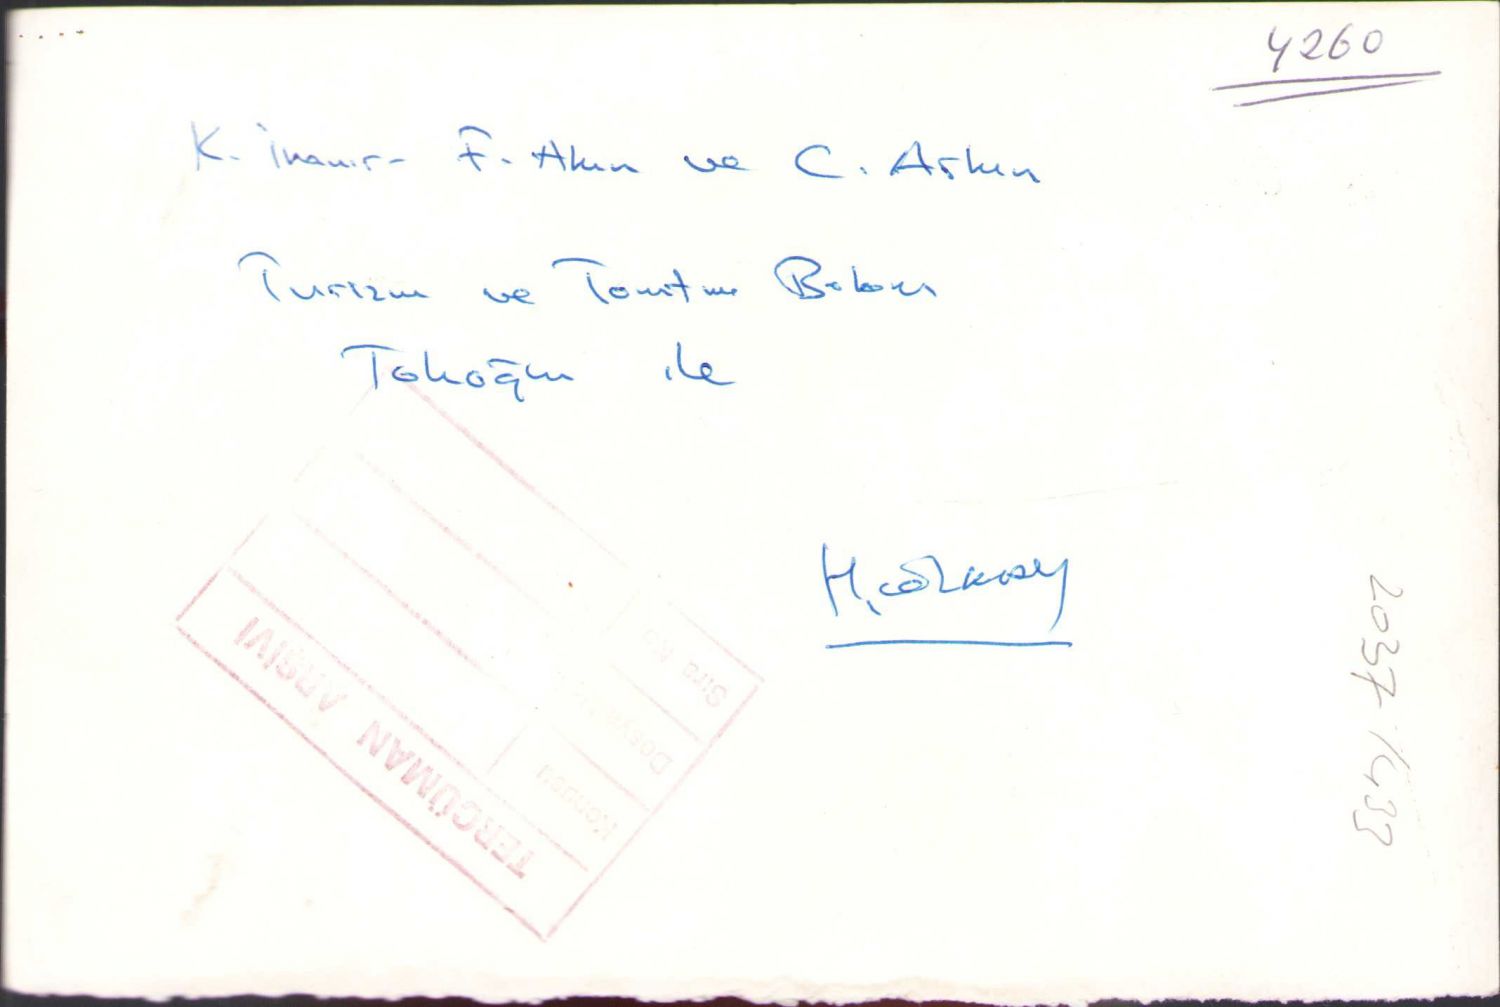 4260
K. İnanır - F. Akın ve C. Arkın
Turizm ve Tanıtma Bakanı
Tokoğlu ile
H. Özkasay
TERCÜMAN ARŞİVİ
Konusu
Dosya No
Sıra No.
2037/433